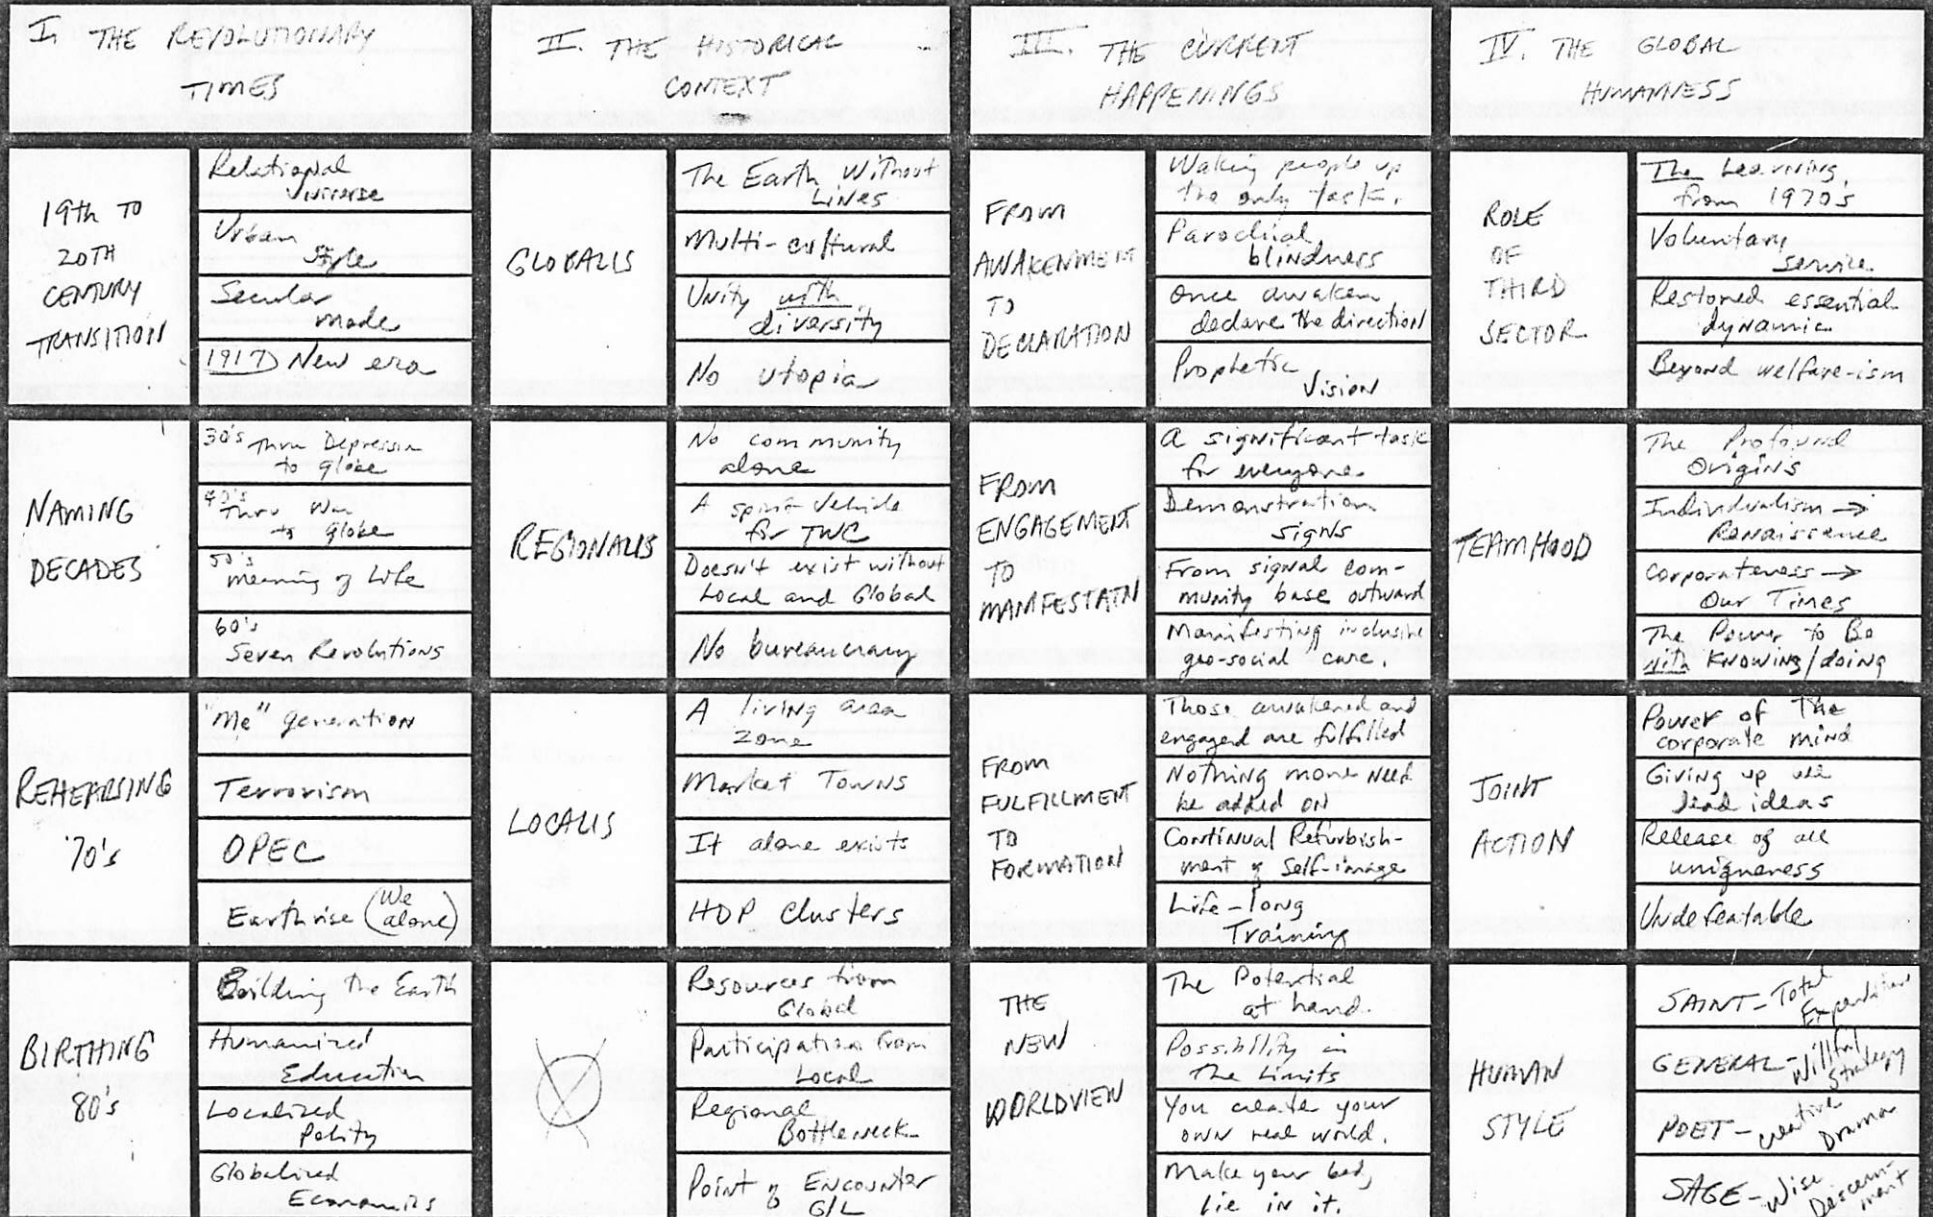 I. THE REVOLUTIONARY
TIMES
19th TO
20TH
CENTURY
TRANSITION
Relational
Universe
Urban
Style
Secular
mode
1917) New era
NAMING
DECADES
30's Thru Depression
to globe
40's
Thru War
to globe
50's
meaning of Life
60's
Seven Revolutions
REHEARSING
'70's
"Me" generation
Terrorism
OPEC
Earthrise (We
alone)
BIRTHING
80's
Building the Earth
Humanized
Education
Localized
Polity
Globalized
Economics
II. THE HISTORICAL
CONTEXT
GLOBALIS
The Earth Without
Lines
Multi-cultural
Unity with
diversity
No utopia
REGIONALIS
No community
alone
A spirit vehicle
for TWC
Doesn't exist without
Local and Global
No bureaucracy
LOCALIS
A living area
zone
Market Towns
It alone exists
HDP Clusters
Resources from
Global
Participation from
Local
Regional
Bottleneck
Point of Encounter
G/L
III. THE CURRENT
HAPPENINGS
FROM
AWAKENMENT
TO
DECLARATION
Waking people up
the only task.
Parochial
blindness
Once awaken
declare the direction
Prophetic
Vision
FROM
ENGAGEMENT
TO
MANIFESTATN
A significant task
for everyone
Demonstration
signs
From signal com-
munity base outward
Manifesting inclusive
geo-social care.
FROM
FULFILLMENT
TO
FORMATION
Those awakened and
engaged are fulfilled
Nothing more need
be added on
Continual Refurbish-
ment of Self-image
Life-long
Training
THE
NEW
WORLDVIEW
The Potential
at hand.
Possibility in
The Limits
You create your
own real world.
Make your bed,
Lie in it.
IV. THE GLOBAL
HUMANNESS
ROLE
OF
THIRD
SECTOR
The Learning
from 1970s
Voluntary
service
Restored essential
dynamic
Beyond welfare-ism
TEAMHOOD
The Profound
Origins
Individualism →
Renaissance
Corporateness →
Our Times
The Power to Be
with Knowing/doing
JOINT
ACTION
Power of The
corporate mind
Giving up all
dead ideas
Release of all
uniqueness
Undefeatable
HUMAN
STYLE
SAINT - Total
Expenditure
GENERAL - Willful
Strategy
POET - Creative
Drama
SAGE - Wise
Discern-
ment